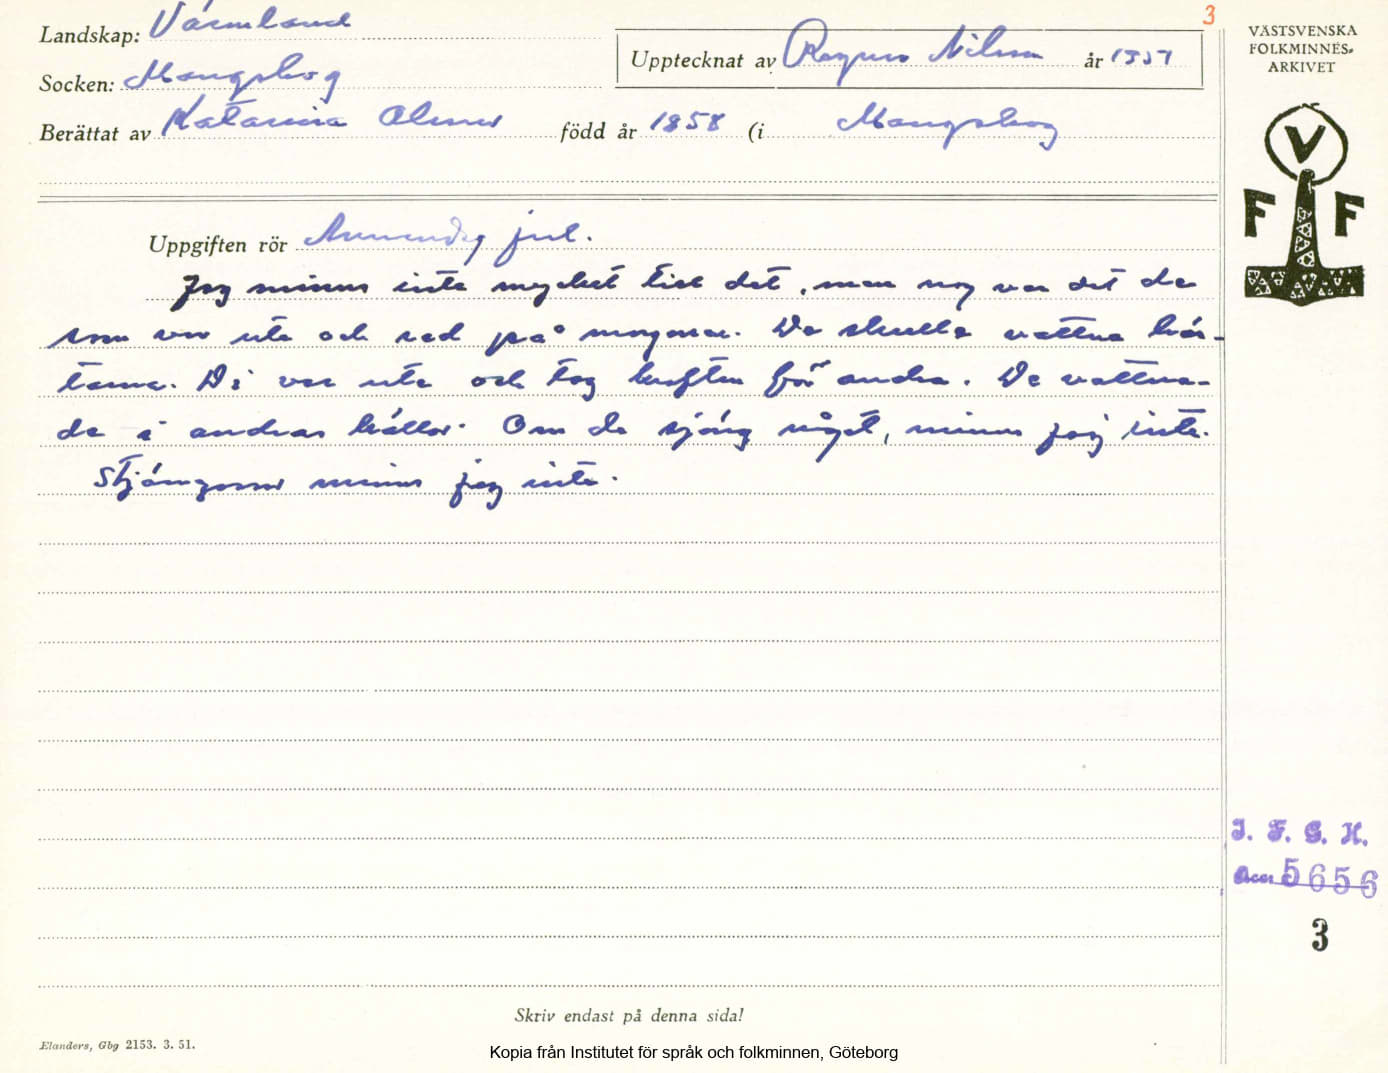 3
Landskap: Värmland
Socken: Mangskog
Upptecknat av Ragnar Nilsson år 1951
Berättat av Katarina Olsson född år 1858 (i Mangskog
Uppgiften rör Annandag jul.
Jag minns inte mycket tie det, men nog var det de
som var ute och red på morgonen. De skulle vattna häs-
tarna. Di var ute och tog kraften för andra. De vattna-
de i andras källor. Om de sjöng något, minns jag inte.
Stjärngossar minns jag inte.
Skriv endast på denna sida!
Elanders, Gbg 2153. 3. 51.
Kopia från Institutet för språk och folkminnen, Göteborg
VÄSTSVENSKA
FOLKMINNES-
ARKIVET
V
F F
I. F. G. H.
Acc 5656
3